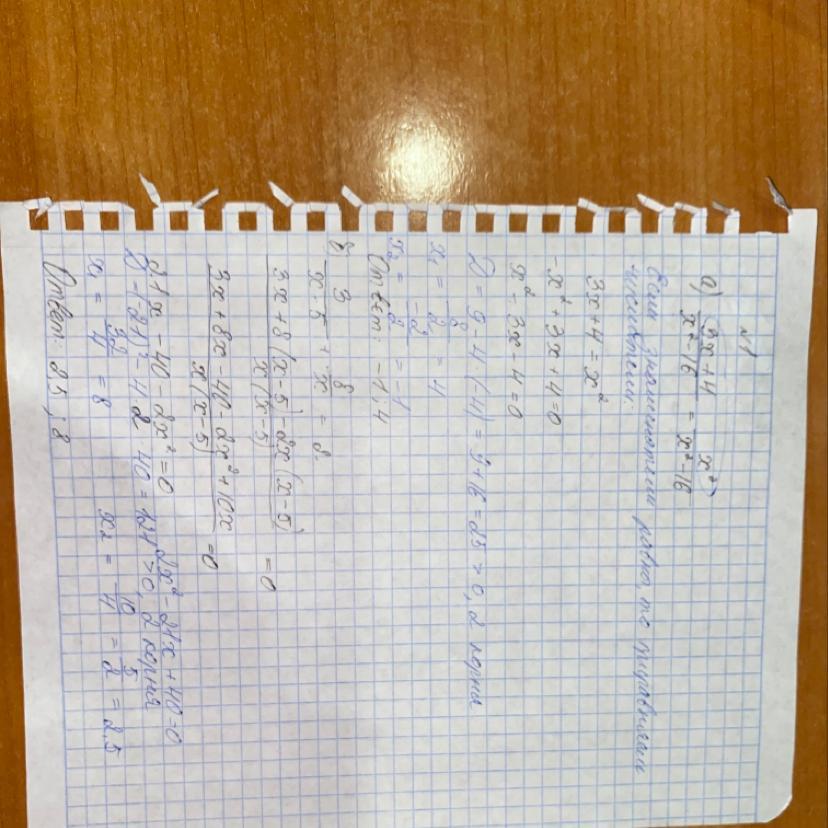 №1
а) (3x+4)/(x²-16) = x²/(x²-16)
Если знаменатели равны, то приравниваем
числители:
3x+4 = x²
-x²+3x+4=0
x²-3x-4=0
D = 9-4·(-4) = 9+16 = 25 > 0, 2 корня
x₁ = 8/2 = 4
x₂ = -2/2 = -1
Ответ: -1; 4
б) 3/(x-5) + 8/x = 2
(3x+8(x-5)-2x(x-5))/(x(x-5)) = 0
(3x+8x-40-2x²+10x)/(x(x-5)) = 0
21x-40-2x²=0 2x²-21x+40=0
D=(-21)²-4·2·40=121>0, 2 корня
x₁ = 32/4 = 8 x₂ = 10/4 = 5/2 = 2,5
Ответ: 2,5; 8